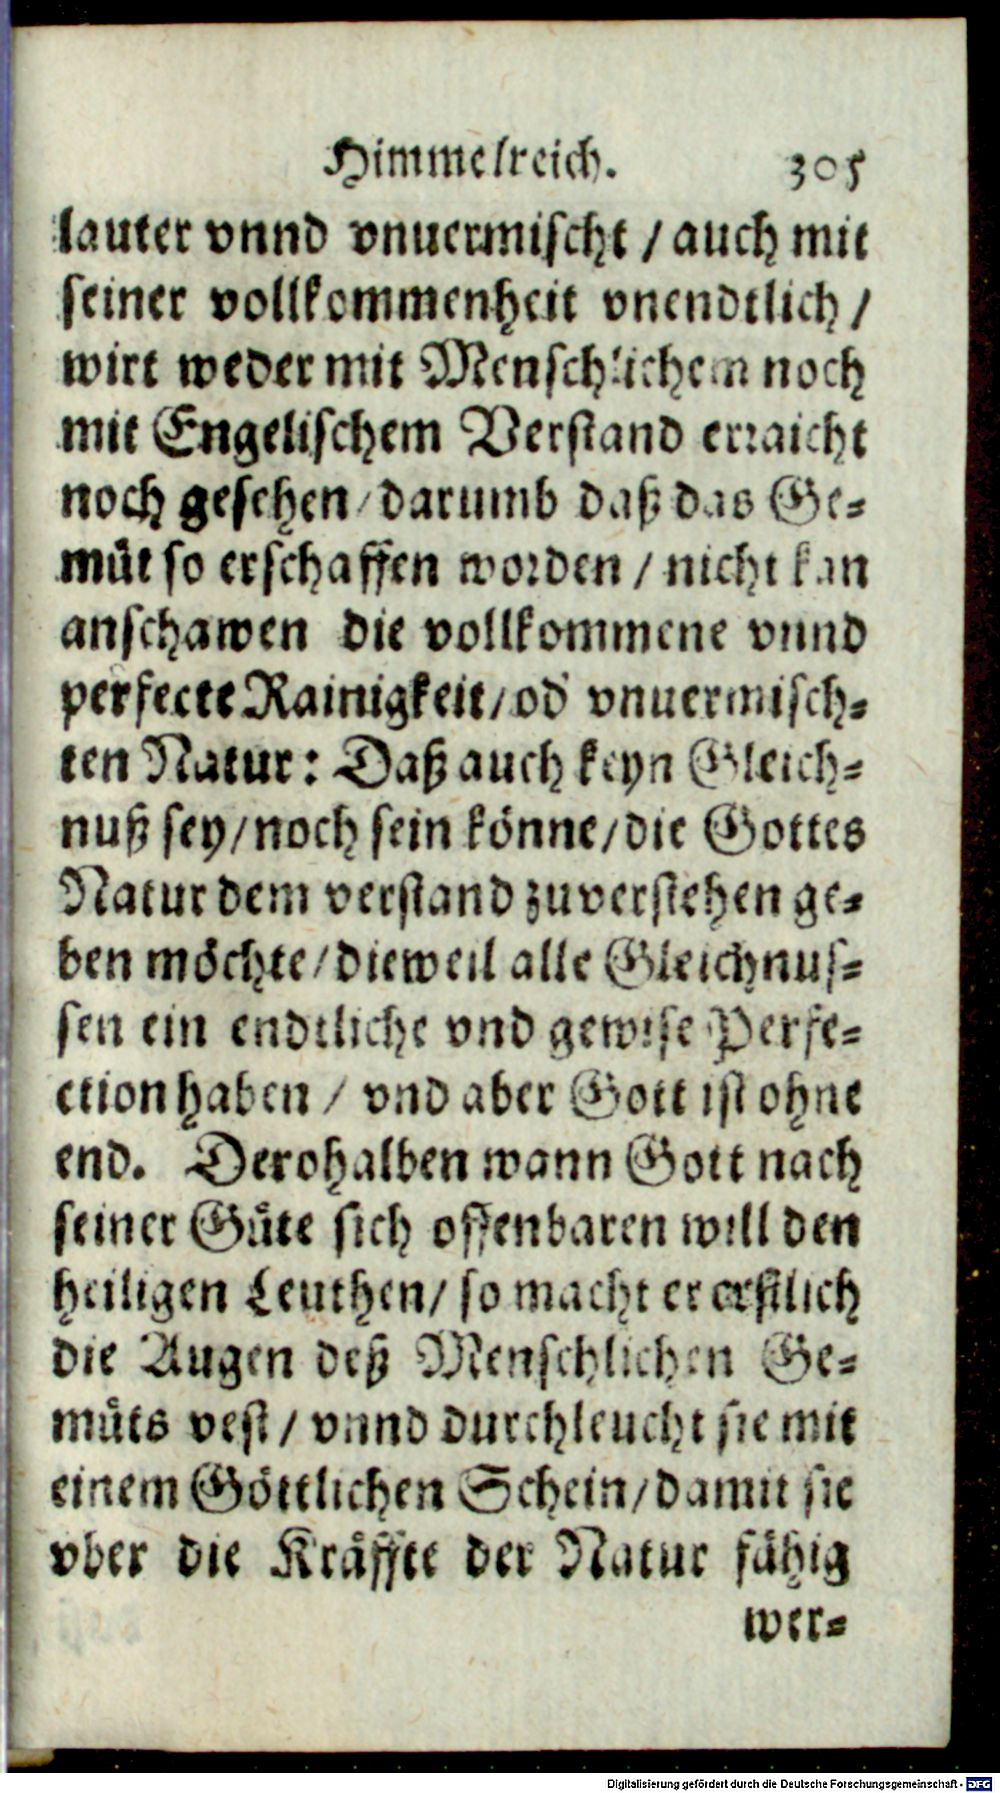 Himmelreich. 305
lauter vnnd vnuermischt / auch mit
seiner vollkommenheit vnendtlich /
wirt weder mit Menschlichem noch
mit Engelischem Verstand erraicht
noch gesehen / darumb daß das Ge-
müt so erschaffen worden / nicht kan
anschawen die vollkommene vnnd
perfecte Rainigkeit / od' vnuermisch-
ten Natur: Daß auch keyn Gleich-
nuß sey / noch sein könne / die Gottes
Natur dem verstand zuverstehen ge-
ben möchte / dieweil alle Gleichnus-
sen ein endtliche vnd gewise Perfe-
ction haben / vnd aber Gott ist ohne
end. Derohalben wann Gott nach
seiner Güte sich offenbaren will den
heiligen Leuthen / so macht er erstlich
die Augen deß Menschlichen Ge-
müts vest / vnnd durchleucht sie mit
einem Göttlichen Schein / damit sie
vber die Kräffte der Natur fähig
wer-
Digitalisierung gefördert durch die Deutsche Forschungsgemeinschaft - DFG